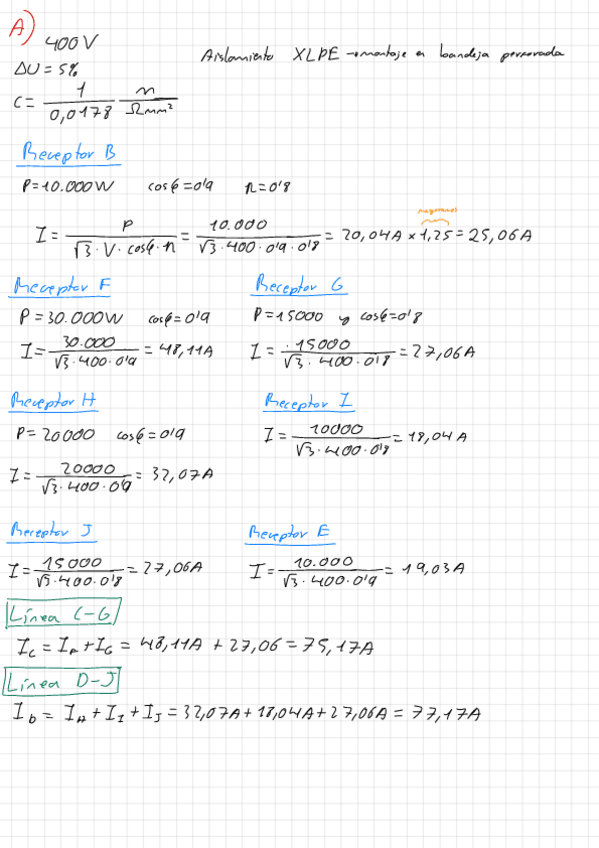 A)
400V
Aislamiento XLPE → montaje en bandeja perforada
ΔU = 5%
C = 1/0,0178 m/Ωmm²
Receptor B
P=10.000W cosφ=0'9 η=0'8
mayoramos
I = P/(√3·V·cosφ·η) = 10.000/(√3·400·0'9·0'8) = 20,04A × 1,25 = 25,06A
Receptor F
P=30.000W cosφ=0'9
I = 30.000/(√3·400·0'9) = 48,11A
Receptor G
P=15000 y cosφ=0'8
I = 15000/(√3·400·0'8) = 27,06A
Receptor H
P=20000 cosφ=0'9
I = 20000/(√3·400·0'9) = 32,07A
Receptor I
I = 10000/(√3·400·0'8) = 18,04A
Receptor J
I = 15000/(√3·400·0'8) = 27,06A
Receptor E
I = 10.000/(√3·400·0'9) = 19,03A
Línea C-G
I_C = I_F + I_G = 48,11A + 27,06 = 75,17A
Línea D-J
I_D = I_H + I_I + I_J = 32,07A + 18,04A + 27,06A = 77,17A